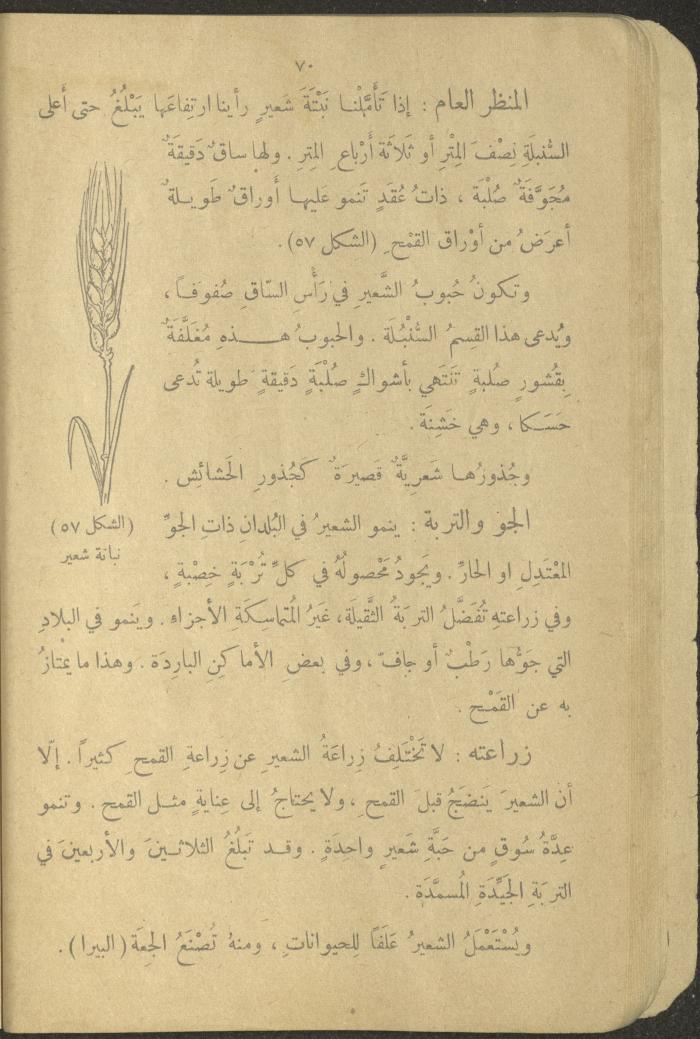 ٧٠
المنظر العام : إذا تَأَمَّلْنا نَبْتَةَ شَعيرٍ رأينا ارتِفاعَها يَبْلُغُ حتى أَعلى
السُّنبلَةِ نِصْفَ المِتْرِ أو ثَلاثَةَ أَرْباعِ المِترِ . ولها ساقٌ دَقيقَةٌ
مُجَوَّفَةٌ صُلْبَة ، ذاتُ عُقَدٍ تَنمو عَليها أَوراقٌ طَويلةٌ
أعرَضُ من أَوْراقِ القَمْحِ (الشكل ٥٧) .
وتكونُ حُبوبُ الشَّعيرِ في رَأْسِ السّاقِ صُفوفاً ،
ويُدعى هذا القِسمُ السُّنْبُلَة . والحبوبُ هذهِ مُغَلَّفَةٌ
بِقُشورٍ صُلبةٍ تَنتَهي بأشواكٍ صُلْبَةٍ دَقيقةٍ طويلة تُدعى
حَسَكا ، وهي خَشِنَة .
وجُذورُها شَعرِيَّةٌ قَصيرَةٌ كَجُذورِ الحَشائِش .
(الشكل ٥٧)
نباتة شعير
الجو والتربة : ينمو الشعيرُ في البُلدانِ ذاتِ الجوِّ
المُعْتَدِلِ او الحارِّ . ويَجودُ مَحْصولُهُ في كلِّ تُرْبَةٍ خِصْبةٍ ،
وفي زراعتهِ تُفَضَّلُ التربَةُ الثَّقيلَة ، غَيرُ المُتماسِكَةِ الأجزاء . ويَنمو في البلادِ
التي جَوُّها رَطْبٌ أو جافٌّ ، وفي بعضِ الأماكنِ البارِدَة . وهذا ما يمْتازُ
به عن القَمْح .
زراعته : لا تَخْتَلِفُ زِراعَةُ الشعيرِ عن زِراعةِ القمحِ كثيراً . إلّا
أن الشعيرَ يَنضَجُ قبلَ القمحِ ، ولا يحتاجُ إلى عِنايةٍ مثل القمح . وتنمو
عِدَّةُ سُوقٍ من حَبَّةِ شَعيرٍ واحدَةٍ . وقد تَبلُغُ الثلاثينَ والأربعينَ في
التربَةِ الجَيِّدَةِ المُسمَّدَة .
ويُسْتَعْمَلُ الشعيرُ عَلَفاً لِلحيواناتِ ، ومنهُ تُصْنَعُ الجِعَة (البيرا) .